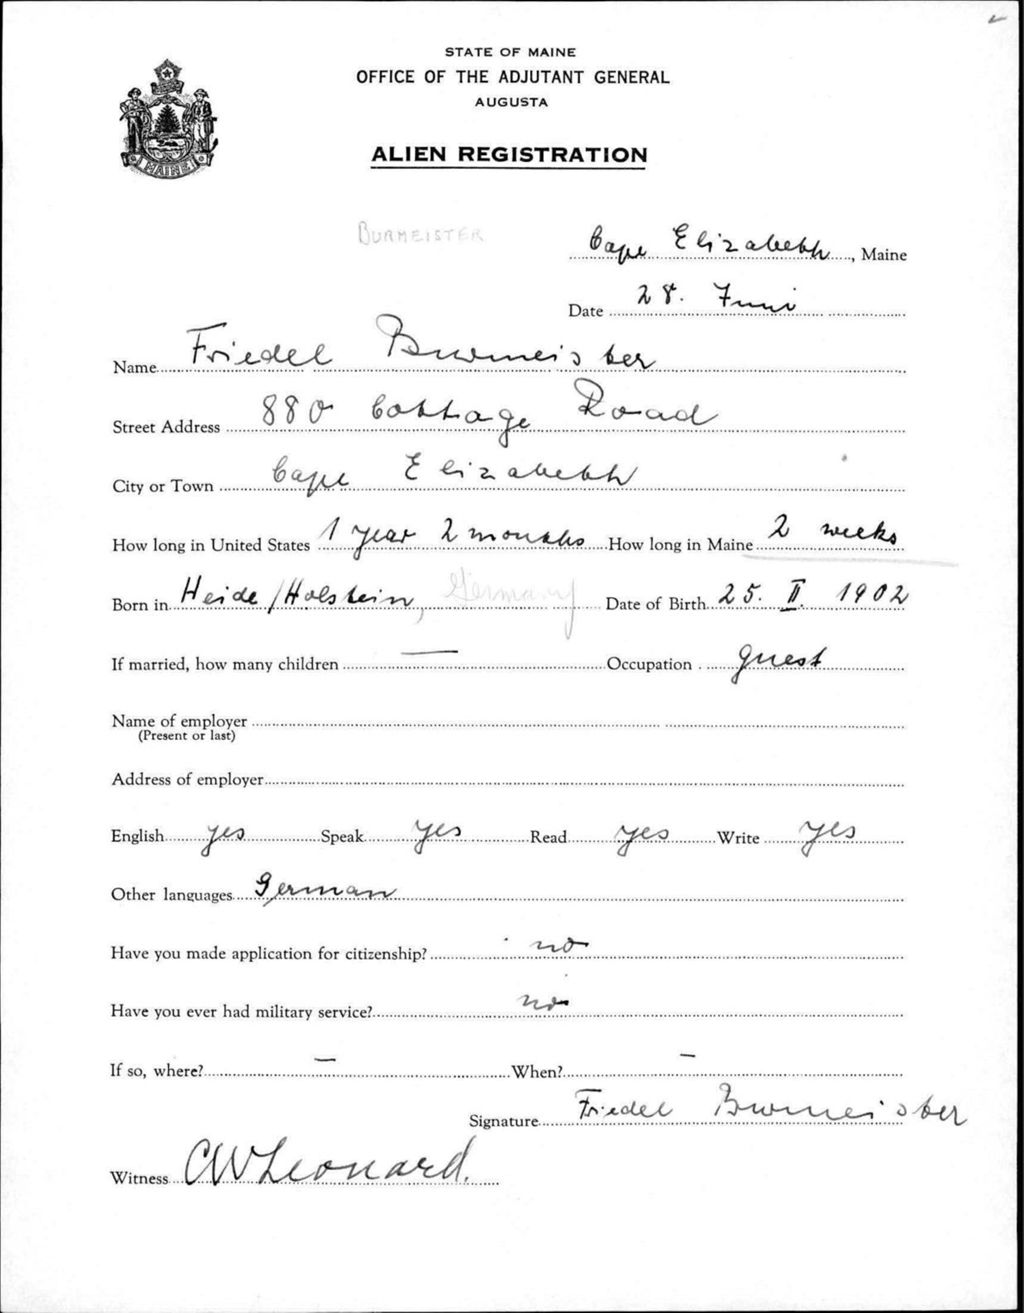 STATE OF MAINE
OFFICE OF THE ADJUTANT GENERAL
AUGUSTA
ALIEN REGISTRATION
MAINE
BURMEISTER
Cape Elizabeth, Maine
Date 28. Juni
Name Friedel Burmeister
Street Address 880 Cottage Road
City or Town Cape Elizabeth
How long in United States 1 year 2 months How long in Maine 2 weeks
Born in Heide/Holstein, Germany Date of Birth 25. II. 1902
If married, how many children — Occupation guest
Name of employer
(Present or last)
Address of employer
English yes Speak yes Read yes Write yes
Other languages German
Have you made application for citizenship? no
Have you ever had military service? no
If so, where? — When? —
Signature Friedel Burmeister
Witness CW Leonard.